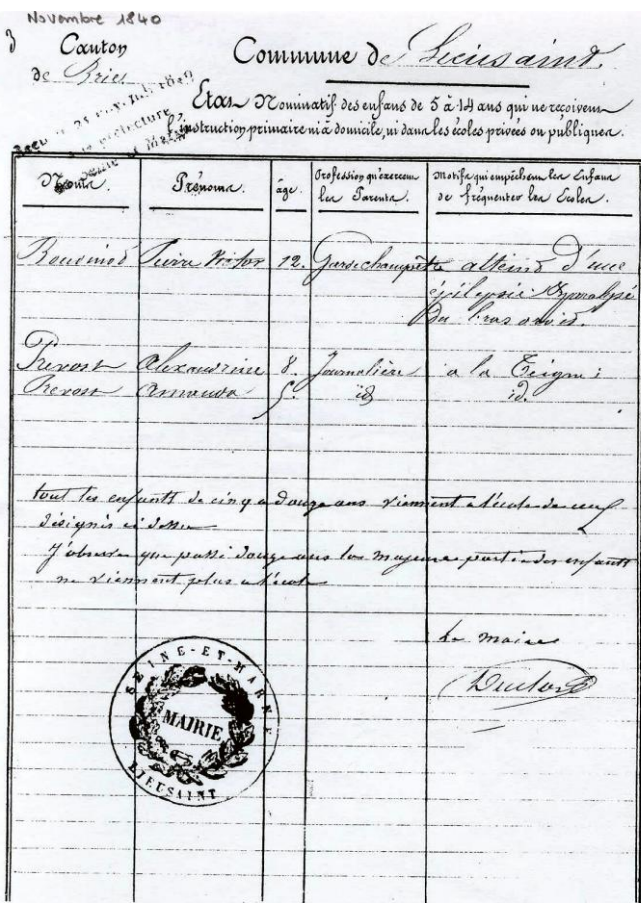 Novembre 1840
3
Canton
de Brie
Commune de Lieusaint.
Etat Nominatif des enfans de 5 à 14 ans qui ne reçoivent
l'instruction primaire ni à domicile, ni dans les écoles privées ou publiques.
Noms. Prénoms. âge. Profession qu'exercent les Parents. Motifs qui empêchent les Enfans de fréquenter les Ecoles.
Pierre Victor 12. Garde champêtre atteint d'une
épilepsie & paralysé
du bras
Prevost Alexandrine 8. Journalière a la Teigne
Prevost 5. id id.
tout les enfants de cinq a douze ans viennent a l'école
désignés ci dessus
J'observe que passé douze ans la majeure partie des enfants
ne viennent plus a l'école
Le maire
SEINE-ET-MARNE
MAIRIE
LIEUSAINT